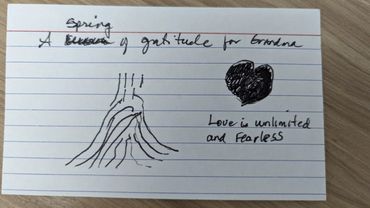 Spring
A of gratitude for Grandma
Love is unlimited
and Fearless